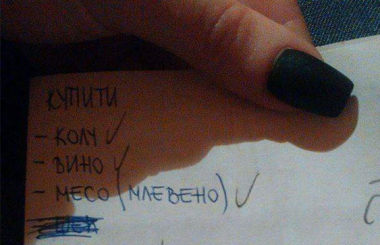 КУПИТИ
- КОЛУ ✓
- ВИНО ✓
- МЕСО (МЛЕВЕНО) ✓